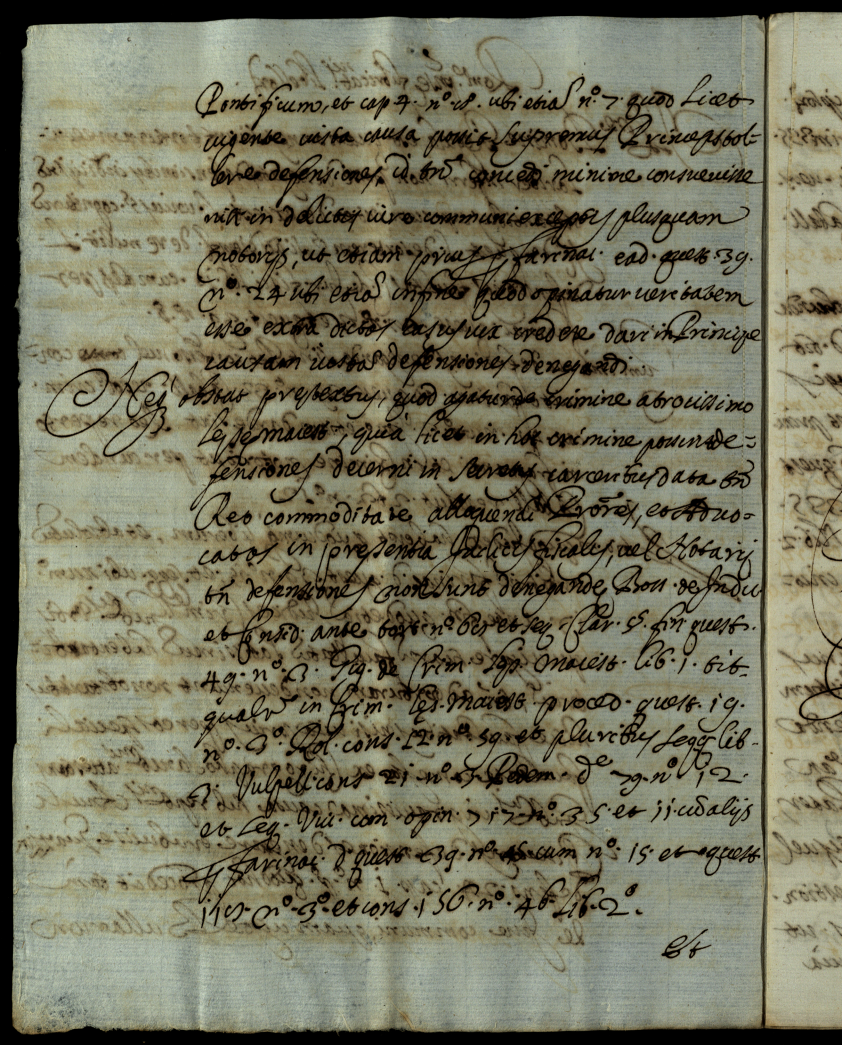 Pontificum, et cap 4. nº. 18. ubi etiã nº. 7. quod licet
urgente iusta causa possit supremus Princeps tol-
lere defensiones, id tñ concedi minime consuevisse
nisi in delictis iure communi exceptis plusquam
notorijs, ut etiam prius farinac. ead. quest. 39.
nº. 24 ubi etiã in fine quod opinatur veritatem
esse extra dictos casus vix credere dari in Principe
causam iustã defensiones denegandi.
Neq obstat prestextus, quod agatur de crimine atrocissimo
lese maiest., quia licet in hoc crimine possint de=
fensiones decerni in secretis carceribus data tñ
Reo commoditate alloquendi Procres, et Advo=
catos in presentia Iudicis fiscalis, vel Notarij
tñ defensiones non sunt denegande Boss. de Indic
et ante tort. nº. et seq. Clar. §. fin quest.
49. nº. 3. Gig. de Crim. lese maiest. lib. 1. tit.
qualr in Crim. les. maiest. proced. quest. 19.
nº. 3º. Rol. cons. 12. nº. 59. et pluribus seqq lib.
3. Vulpell. cons 21. nº. dº 79. nº. 12.
et seq. Viv. com opin. 717. nº. 35. et 11. cũ alijs
farinac. d. quest. 39. nº. cum nº. 15. et quest
nº. 3º. et cons. 156. nº. 46. lib. 2º.
Et